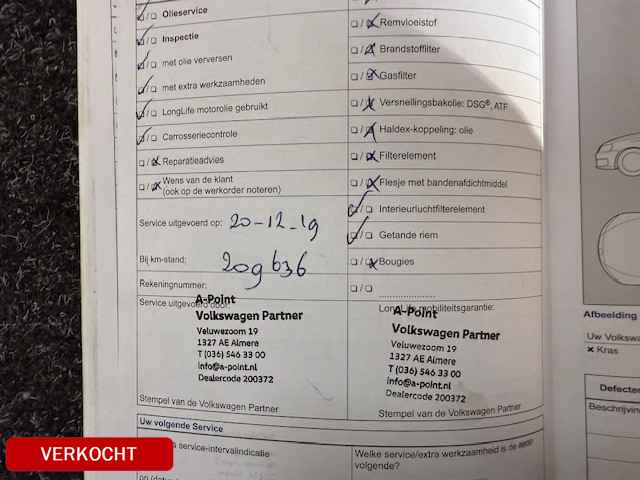 Olieservice
Inspectie
met olie verversen
met extra werkzaamheden
LongLife motorolie gebruikt
Carrosseriecontrole
Reparatieadvies
Wens van de klant
(ook op de werkorder noteren)
Service uitgevoerd op: 20-12-19
Bij km-stand: 209636
Rekeningnummer:
Service uitgevoerd door:
A-Point
Volkswagen Partner
Veluwezoom 19
1327 AE Almere
T (036) 546 33 00
info@a-point.nl
Dealercode 200372
Stempel van de Volkswagen Partner
Remvloeistof
Brandstoffilter
Gasfilter
Versnellingsbakolie: DSG®, ATF
Haldex-koppeling: olie
Filterelement
Flesje met bandenafdichtmiddel
Interieurluchtfilterelement
Getande riem
Bougies
LongLife mobiliteitsgarantie:
A-Point
Volkswagen Partner
Veluwezoom 19
1327 AE Almere
T (036) 546 33 00
info@a-point.nl
Dealercode 200372
Stempel van de Volkswagen Partner
Uw volgende Service
service-intervalindicatie
Welke service/extra werkzaamheid is de eerst
volgende?
Afbeelding
Uw Volkswa
Kras
Defecten
Beschrijvin
VERKOCHT